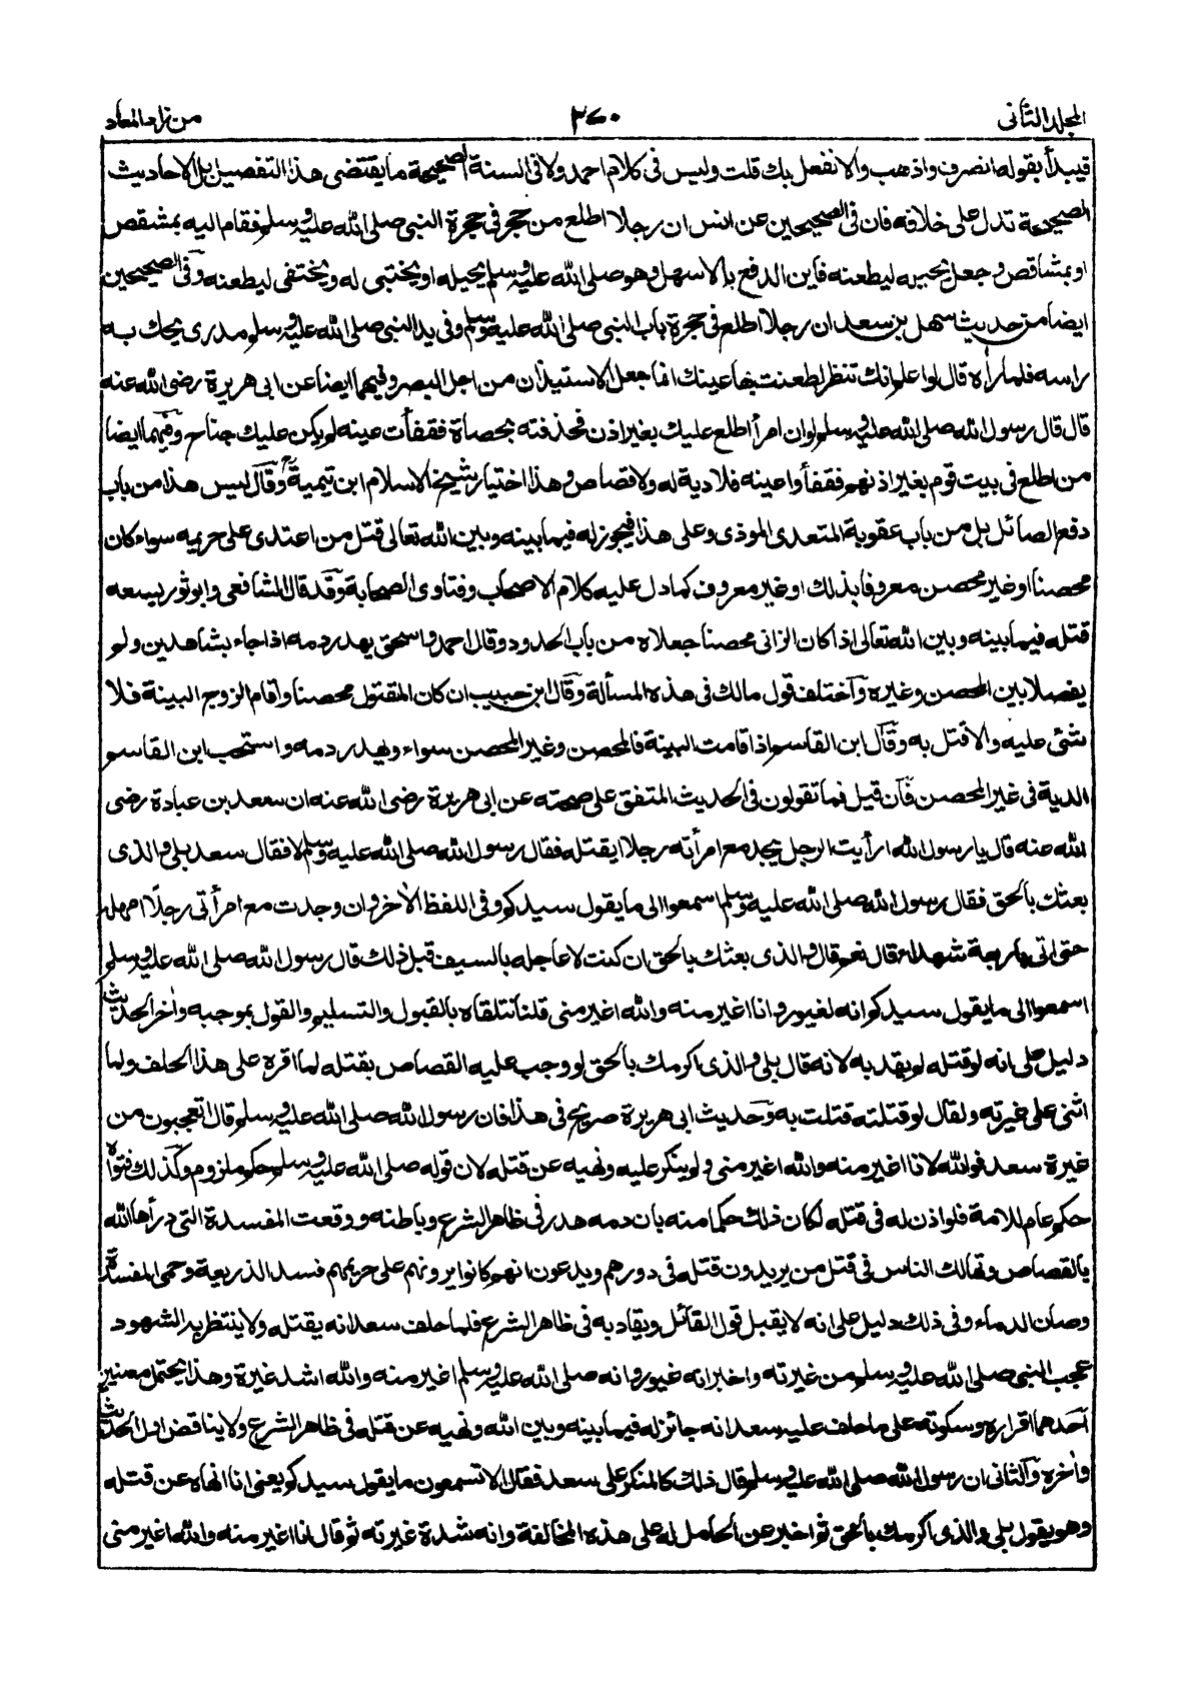 المجلد الثانى
٣٧٠
من زاد المعاد
فيبدأ بقوله انصرف واذهب والا نفعل بك قلت وليس فى كلام احمد ولا فى السنة الصحيحة ما يقتضى هذا التفصيل بل الاحاديث
الصحيحة تدل على خلافه فان فى الصحيحين عن انس ان رجلا اطلع من حجر فى حجرة النبى صلى الله عليه وسلم فقام اليه بمشقص
او بمشاقص وجعل يحيبه ليطعنه فاين الدفع بالاسهل وهو صلى الله عليه وسلم يحيله او يختبى له ويختفى ليطعنه وفى الصحيحين
ايضا من حديث سهل بن سعد ان رجلا اطلع فى حجرة باب النبى صلى الله عليه وسلم وفى يد النبى صلى الله عليه وسلم مدرى يحك به
راسه فلما رأه قال لو اعلم انك تنظر لطعنت بها عينك انما جعل الاستيذان من اجل البصر وفيهما ايضا عن ابى هريرة رضى الله عنه
قال قال رسول الله صلى الله عليه وسلم لو ان امرأ اطلع عليك بغير اذن فحذفته بحصاة ففقأت عينه لم يكن عليك جناح وفيهما ايضا
من اطلع فى بيت قوم بغير اذنهم ففقأوا عينه فلا دية له ولا قصاص وهذا اختيار شيخ الاسلام ابن تيمية وقال ليس هذا من باب
دفع الصائل بل من باب عقوبة المتعدى الموذى وعلى هذا فيجوز له فيما بينه وبين الله تعالى قتل من اعتدى على حريمه سواء كان
محصنا او غير محصن معروفا بذلك او غير معروف كما دل عليه كلام الاصحاب وفتاوى الصحابة وقد قال الشافعى وابو ثور يسعه
قتله فيما بينه وبين الله تعالى اذا كان الزانى محصنا جعلاه من باب الحدود وقال احمد واسحق يهدر دمه اذا جاء بشاهدين ولم
يفصلا بين المحصن وغيره واختلف قول مالك فى هذه المسألة وقال ابن حبيب ان كان المقتول محصنا واقام الزوج البينة فلا
شئ عليه والا قتل به وقال ابن القاسم اذا قامت البينة فالمحصن وغير المحصن سواء ويهدر دمه واستحب ابن القاسم
الدية فى غير المحصن فان قيل فما تقولون فى الحديث المتفق على صحته عن ابى هريرة رضى الله عنه ان سعد بن عبادة رضى
الله عنه قال يا رسول الله ارأيت الرجل يجد مع امرأته رجلا ايقتله فقال رسول الله صلى الله عليه وسلم لا فقال سعد بلى والذى
بعثك بالحق فقال رسول الله صلى الله عليه وسلم اسمعوا الى ما يقول سيدكم وفى اللفظ الاخر وان وجدت مع امرأتى رجلا امهله
حتى اتى باربعة شهداء قال نعم قال والذى بعثك بالحق ان كنت لاعاجله بالسيف قبل ذلك قال رسول الله صلى الله عليه وسلم
اسمعوا الى ما يقول سيدكم انه لغيور وانا اغير منه والله اغير منى قلنا نتلقاه بالقبول والتسليم والقول بموجبه وأخر الحديث
دليل على انه لو قتله لم يقد به لانه قال بلى والذى اكرمك بالحق لو وجب عليه القصاص بقتله لما اقره على هذا الحلف ولما
اثنى على غيرته ولقال لو قتلته قتلت به وحديث ابى هريرة صريح فى هذا فان رسول الله صلى الله عليه وسلم قال اتعجبون من
غيرة سعد فوالله لانا اغير منه والله اغير منى ولم ينكر عليه ونهيه عن قتله لان قوله صلى الله عليه وسلم حكم ملزوم وكذلك فتواه
حكم عام للامة فلو اذن له فى قتله لكان ذلك حكما منه بان دمه هدر فى ظاهر الشرع وباطنه ووقعت المفسدة التى درأها الله
بالقصاص وتهالك الناس فى قتل من يريدون قتله فى دورهم ويدعون انهم كانوا يرونهم على حريمهم فسد الذريعة وحمى المفسدة
وصان الدماء وفى ذلك دليل على انه لا يقبل قول القائل ويقاد به فى ظاهر الشرع فلما حلف سعد انه يقتله ولا ينتظر به الشهود
عجب النبى صلى الله عليه وسلم من غيرته واخبر انه غيور وانه صلى الله عليه وسلم اغير منه والله اشد غيرة وهذا يحتمل معنيين
احدهما اقراره وسكوته على ما حلف عليه سعد انه جائز له فيما بينه وبين الله ونهيه عن قتله فى ظاهر الشرع ولا يناقض اول الحديث
وأخره والثانى ان رسول الله صلى الله عليه وسلم قال ذلك كالمنكر على سعد فقال الا تسمعون ما يقول سيدكم يعنى انا انهاه عن قتله
وهو يقول بلى والذى اكرمك بالحق ثم اخبر عن الحامل له على هذه المخالفة وانه شدة غيرته ثم قال انا اغير منه والله اغير منى